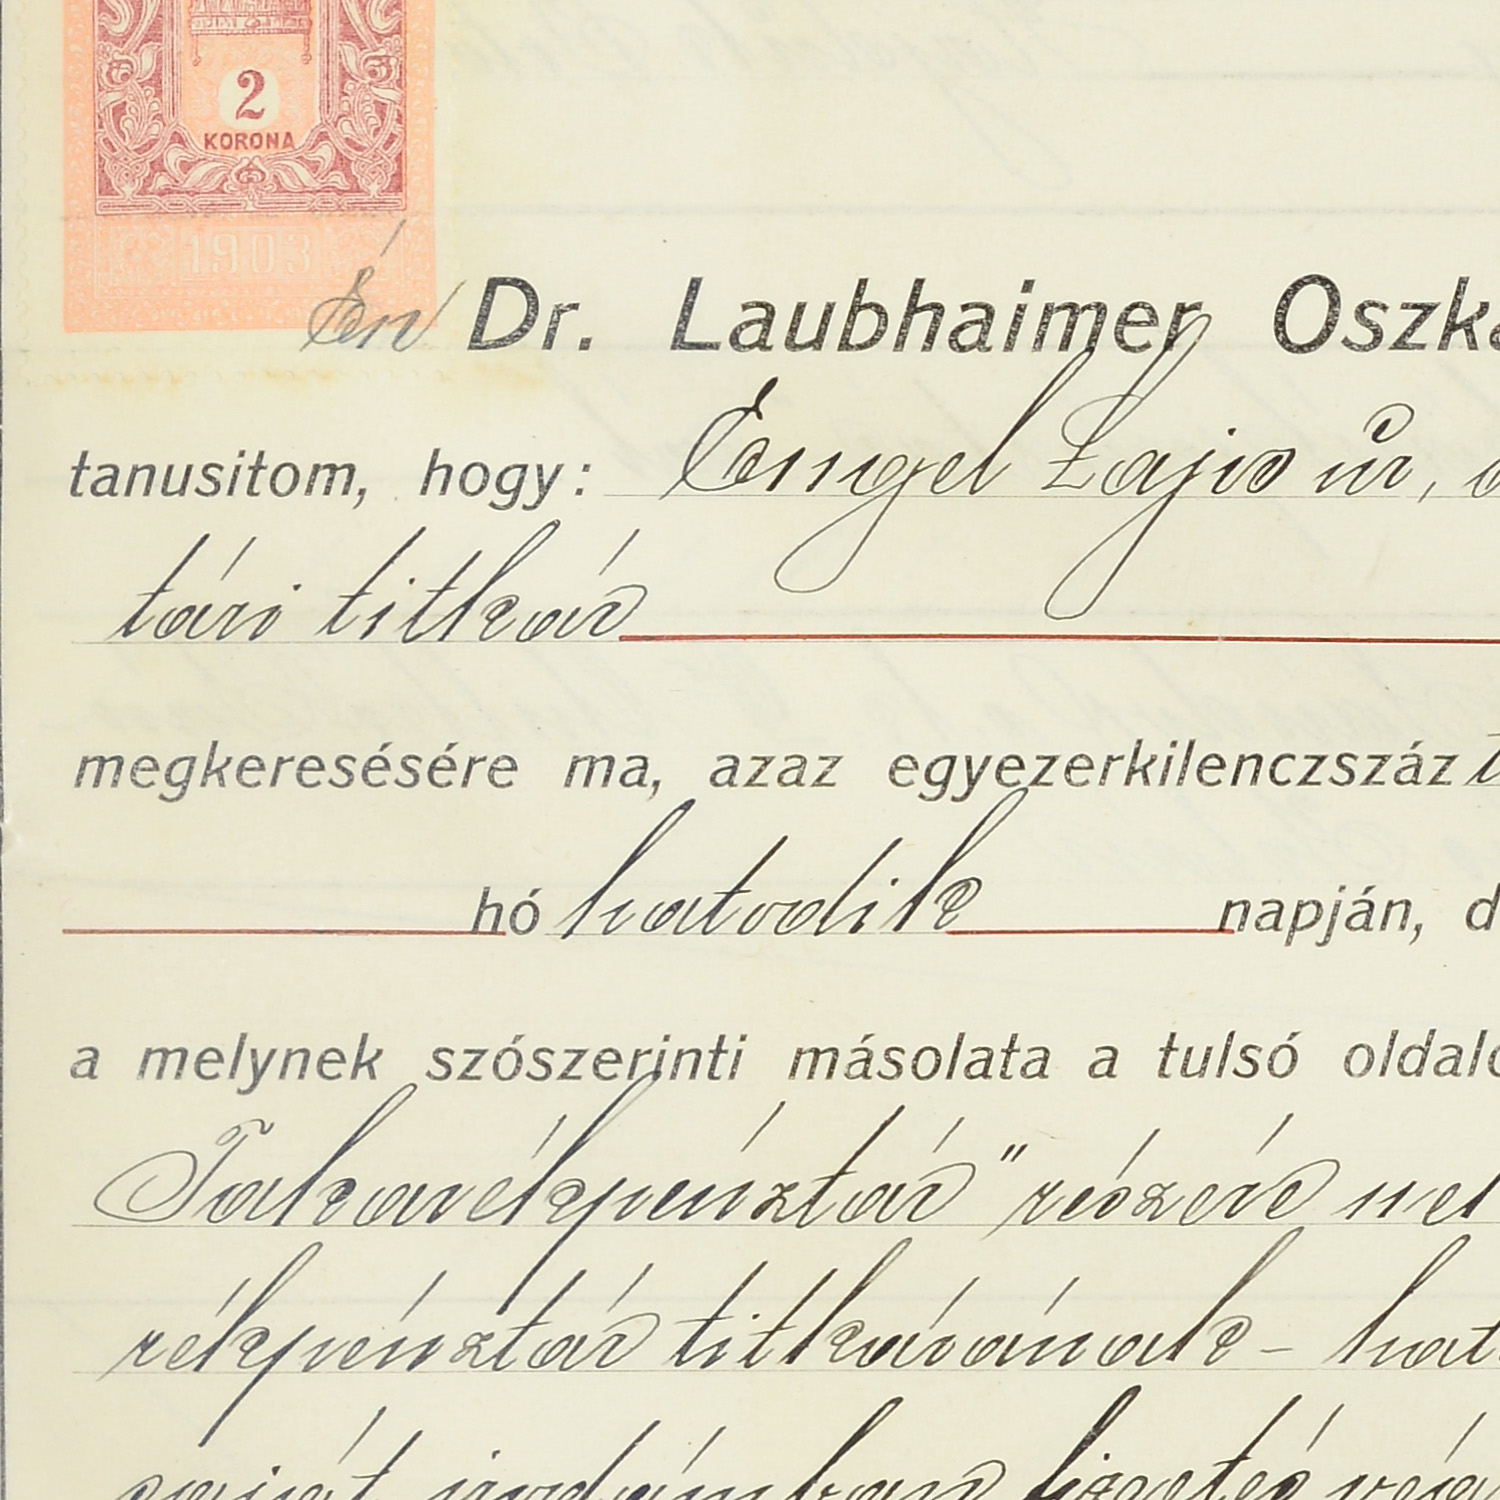 2
KORONA
1903
Én Dr. Laubhaimer Oszká
tanusitom, hogy: Engel Lajos úr,
tári titkár
megkeresésére ma, azaz egyezerkilenczszáz
hó hatodik napján, d
a melynek szószerinti másolata a tulsó oldalo
Takarékpénztár" részére
rékpénztár titkárának – hat
saját irodámban fizetés vég